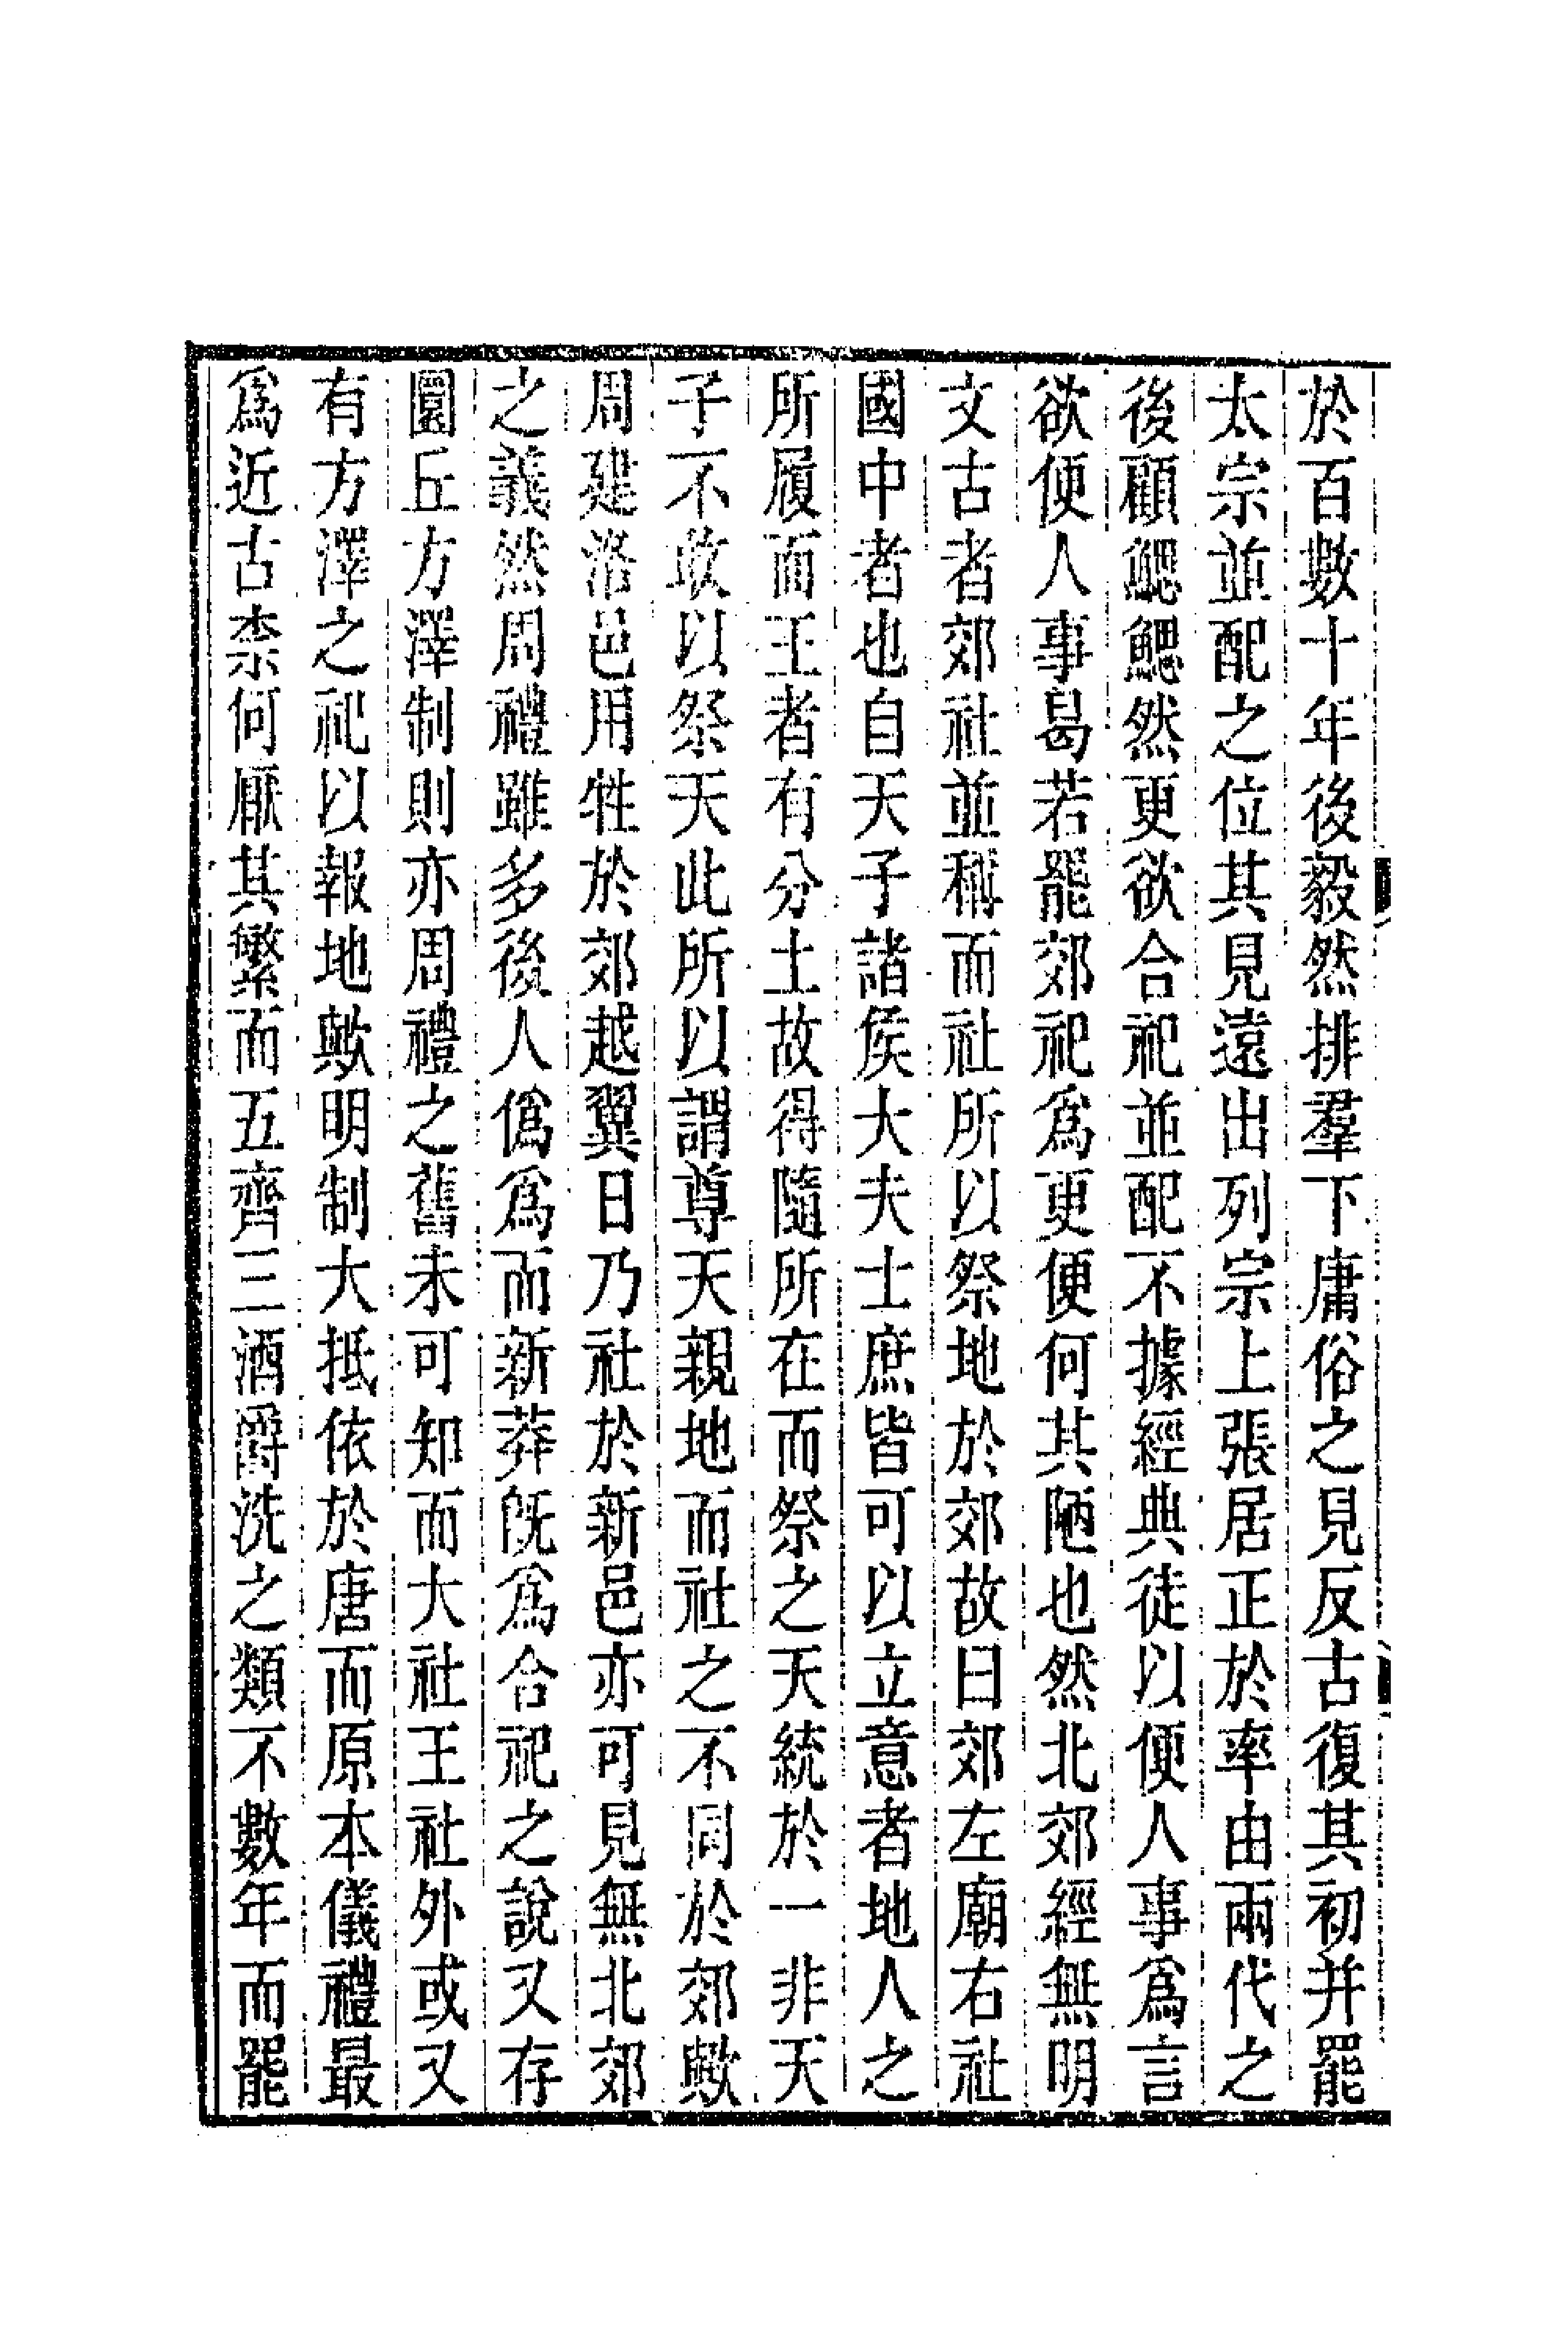 於百數十年後毅然排羣下庸俗之見反古復其初并罷
太宗並配之位其見遠出列宗上張居正於率由兩代之
後顧鰓鰓然更欲合祀並配不據經典徒以便人事爲言
欲便人事曷若罷郊祀爲更便何其陋也然北郊經無明
文古者郊社並稱而社所以祭地於郊故曰郊左廟右社
國中者也自天子諸侯大夫士庶皆可以立意者地人之
所履而王者有分土故得隨所在而祭之天統於一非天
子不敢以祭天此所以謂尊天親地而社之不同於郊歟
周建洛邑用牲於郊越翼日乃社於新邑亦可見無北郊
之義然周禮雖多後人僞爲而新莽旣爲合祀之說又存
圜丘方澤制則亦周禮之舊未可知而大社王社外或又
有方澤之祀以報地歟明制大抵依於唐而原本儀禮最
爲近古柰何厭其繁而五齊三酒爵洗之類不數年而罷